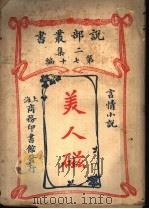 說部叢書
二集
第七十編
言情小說
美人磁
上海
商務印書館發行